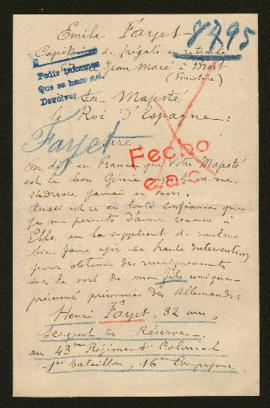 Emile Fayet
8795
Capitaine de frégate en retraite
Jean Macé à Brest
(Finistère)
Pedir informes
Que se hace
Devolver
Sa Majesté
le Roi d'Espagne:
Fayet
Sire
Fecho
e.a.c.
On dit en France que Votre Majesté
est le bon Génie
s'adresse jamais en vain.
Aussi est-ce en toute confiance que
je me permets d'avoir recours à
Elle en la suppliant de vouloir
bien faire agir sa haute intervention
pour obtenir des renseignements
sur le sort de mon fils unique
présumé prisonnier des Allemands:
Henri Fayet, 32 ans,
Sergent de Réserve
au 43me Régiment Colonial
1er bataillon, 16me Compagnie